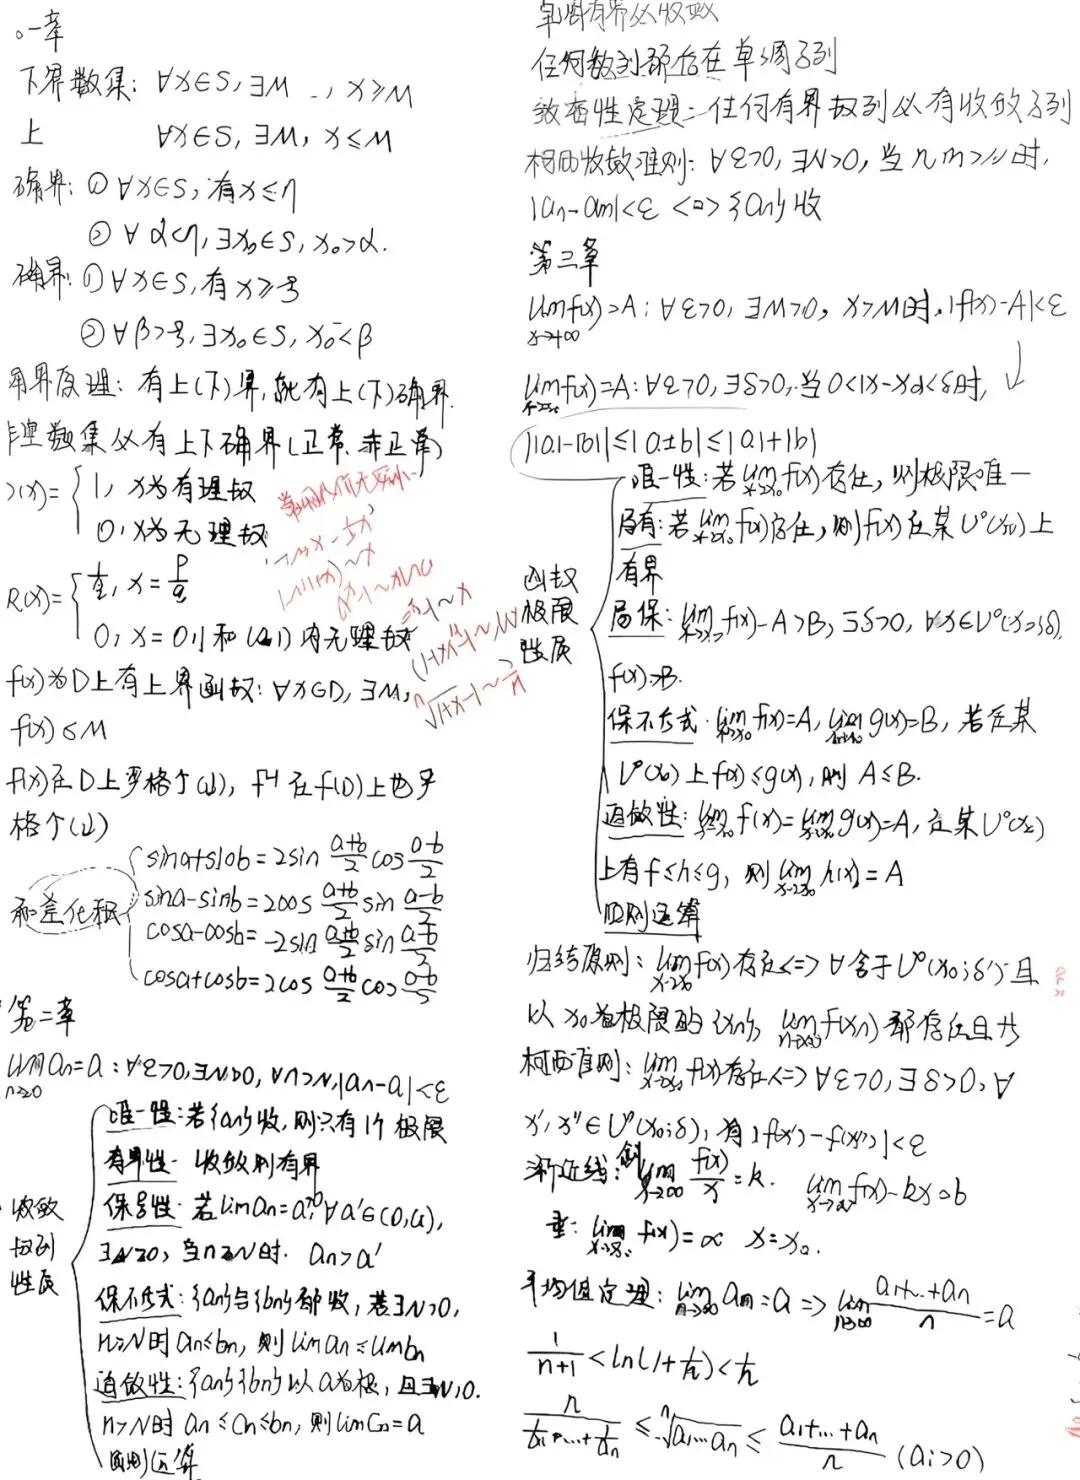 一章
下界数集: ∀x∈S, ∃M, x≥M
上 ∀x∈S, ∃M, x≤M
确界: ① ∀x∈S, 有x≤η
② ∀α<η, ∃x₀∈S, x₀>α.
确界: ① ∀x∈S, 有x≥ξ
② ∀β>ξ, ∃x₀∈S, x₀<β
确界原理: 有上(下)界, 就有上(下)确界.
数集必有上下确界(正常.非正常)
(x)= { 1, x为有理数
0, x为无理数
R(x)= { 1/q, x=p/q
0, x=0,1和(0,1)内无理数
f(x)为D上有上界函数: ∀x∈D, ∃M,
f(x)≤M
f(x)在D上严格个(↓), f⁻¹在f(D)上也严
格个(↓)
和差化积 { sina+sinb=2sin (a+b)/2 cos (a-b)/2
sina-sinb=2cos (a+b)/2 sin (a-b)/2
cosa-cosb=-2sin (a+b)/2 sin (a-b)/2
cosa+cosb=2cos (a+b)/2 cos (a-b)/2
ln(1+x)~x
aˣ-1~xlna
eˣ-1~x
ⁿ√1+x-1~x/n
第二章
lim an=a: ∀ε>0, ∃N>0, ∀n>N, |an-a|<ε
收敛数列性质
唯一性: 若{an}收, 则只有1个极限
有界性 收敛则有界
保号性: 若liman=a>0, ∀a'∈(0,a),
∃N>0, 当n≥N时. an>a'
保不等式: {an}与{bn}都收, 若∃N>0,
n>N时 an≤bn, 则liman≤limbn
迫敛性: {an}{bn}以a为极, 且∃N>0.
n>N时 an≤cn≤bn, 则limcn=a
四则运算
单调有界必收敛
任何数列都存在单调子列
致密性定理: 任何有界数列必有收敛子列
柯西收敛准则: ∀ε>0, ∃N>0, 当n,m>N时,
|an-am|<ε <=> {an}收
第三章
lim f(x)=A: ∀ε>0, ∃M>0, x>M时, |f(x)-A|<ε
x→+∞
lim f(x)=A: ∀ε>0, ∃δ>0, 当0<|x-x₀|<δ时,
x→x₀
||a|-|b||≤|a±b|≤|a|+|b|
函数极限性质
唯一性: 若lim f(x)存在, 则极限唯一
局有: 若lim f(x)存在, 则f(x)在某U°(x₀)上
有界
局保: lim f(x)=A>B, ∃δ>0, ∀x∈U°(x₀;δ),
f(x)>B.
保不等式 lim f(x)=A, lim g(x)=B, 若在某
U°(x₀)上f(x)≤g(x), 则A≤B.
迫敛性: lim f(x)=lim g(x)=A, 在某U°(x₀)
上有f≤h≤g, 则lim h(x)=A
四则运算
归结原则: lim f(x)存在<=>∀含于U°(x₀;δ')且
以x₀为极限的{xn}, lim f(xn)都存在且相
柯西准则: lim f(x)存在<=>∀ε>0, ∃δ>0, ∀
x', x''∈U°(x₀;δ), 有|f(x')-f(x'')|<ε
渐近线: 斜 lim f(x)/x=k. lim f(x)-kx=b
x→∞
垂: lim f(x)=∞ x=x₀.
平均值定理: lim an=a => lim (a₁+...+an)/n=a
1/(n+1)<ln(1+1/n)<1/n
n/(1/a₁+...+1/an) ≤ ⁿ√a₁...an ≤ (a₁+...+an)/n (ai>0)